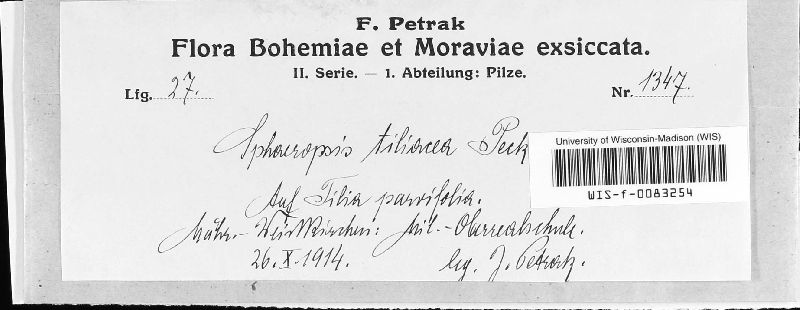 F. Petrak
Flora Bohemiae et Moraviae exsiccata.
II. Serie. — 1. Abteilung: Pilze.
Lfg. 27.
Nr. 1347.
Sphaeropsis tiliacea Peck
University of Wisconsin-Madison (WIS)
WIS-f-0083254
Auf Tilia parvifolia.
Mähr.-Weisskirchen: Mil.-Oberrealschule.
26. X. 1914.
leg. J. Petrak.